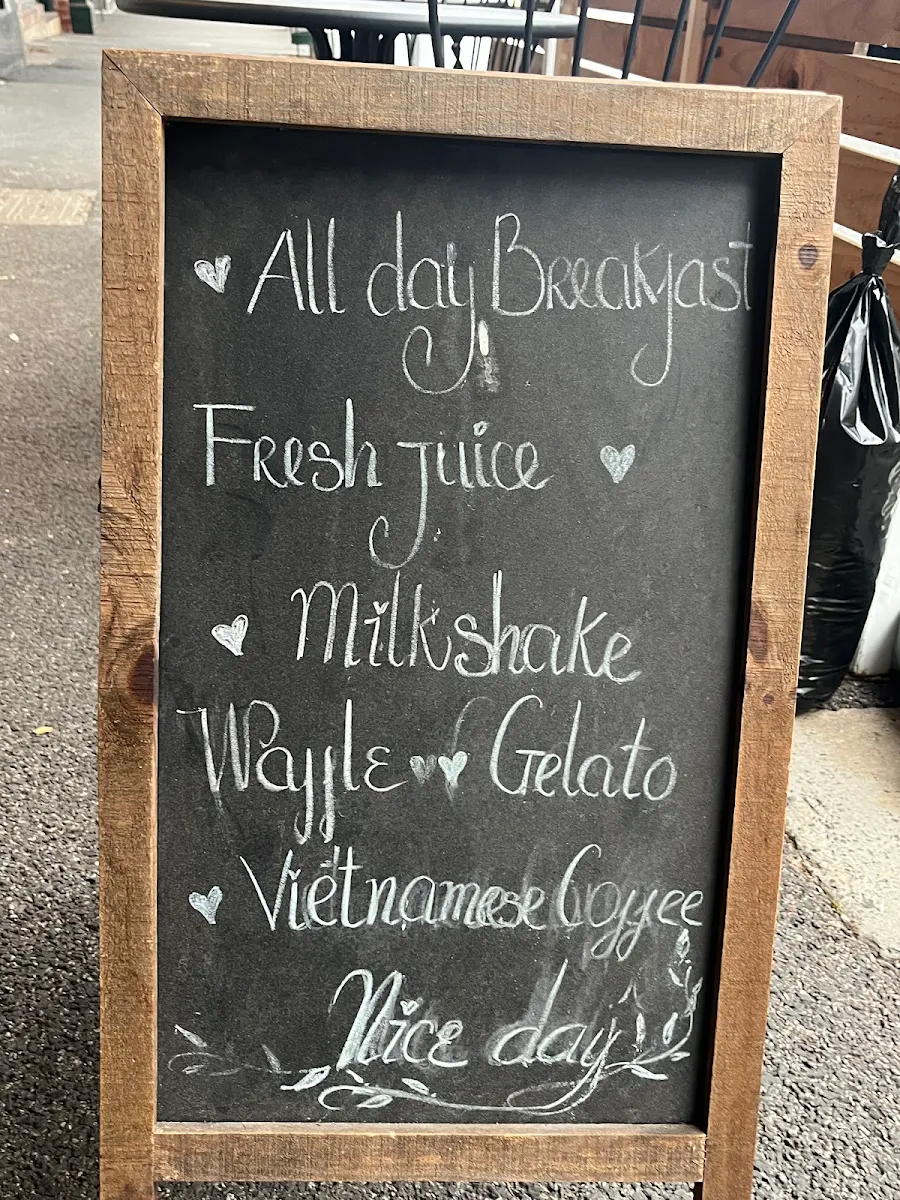 All day Breakfast
Fresh juice
Milkshake
Waffle Gelato
Vietnamese Coffee
Nice day